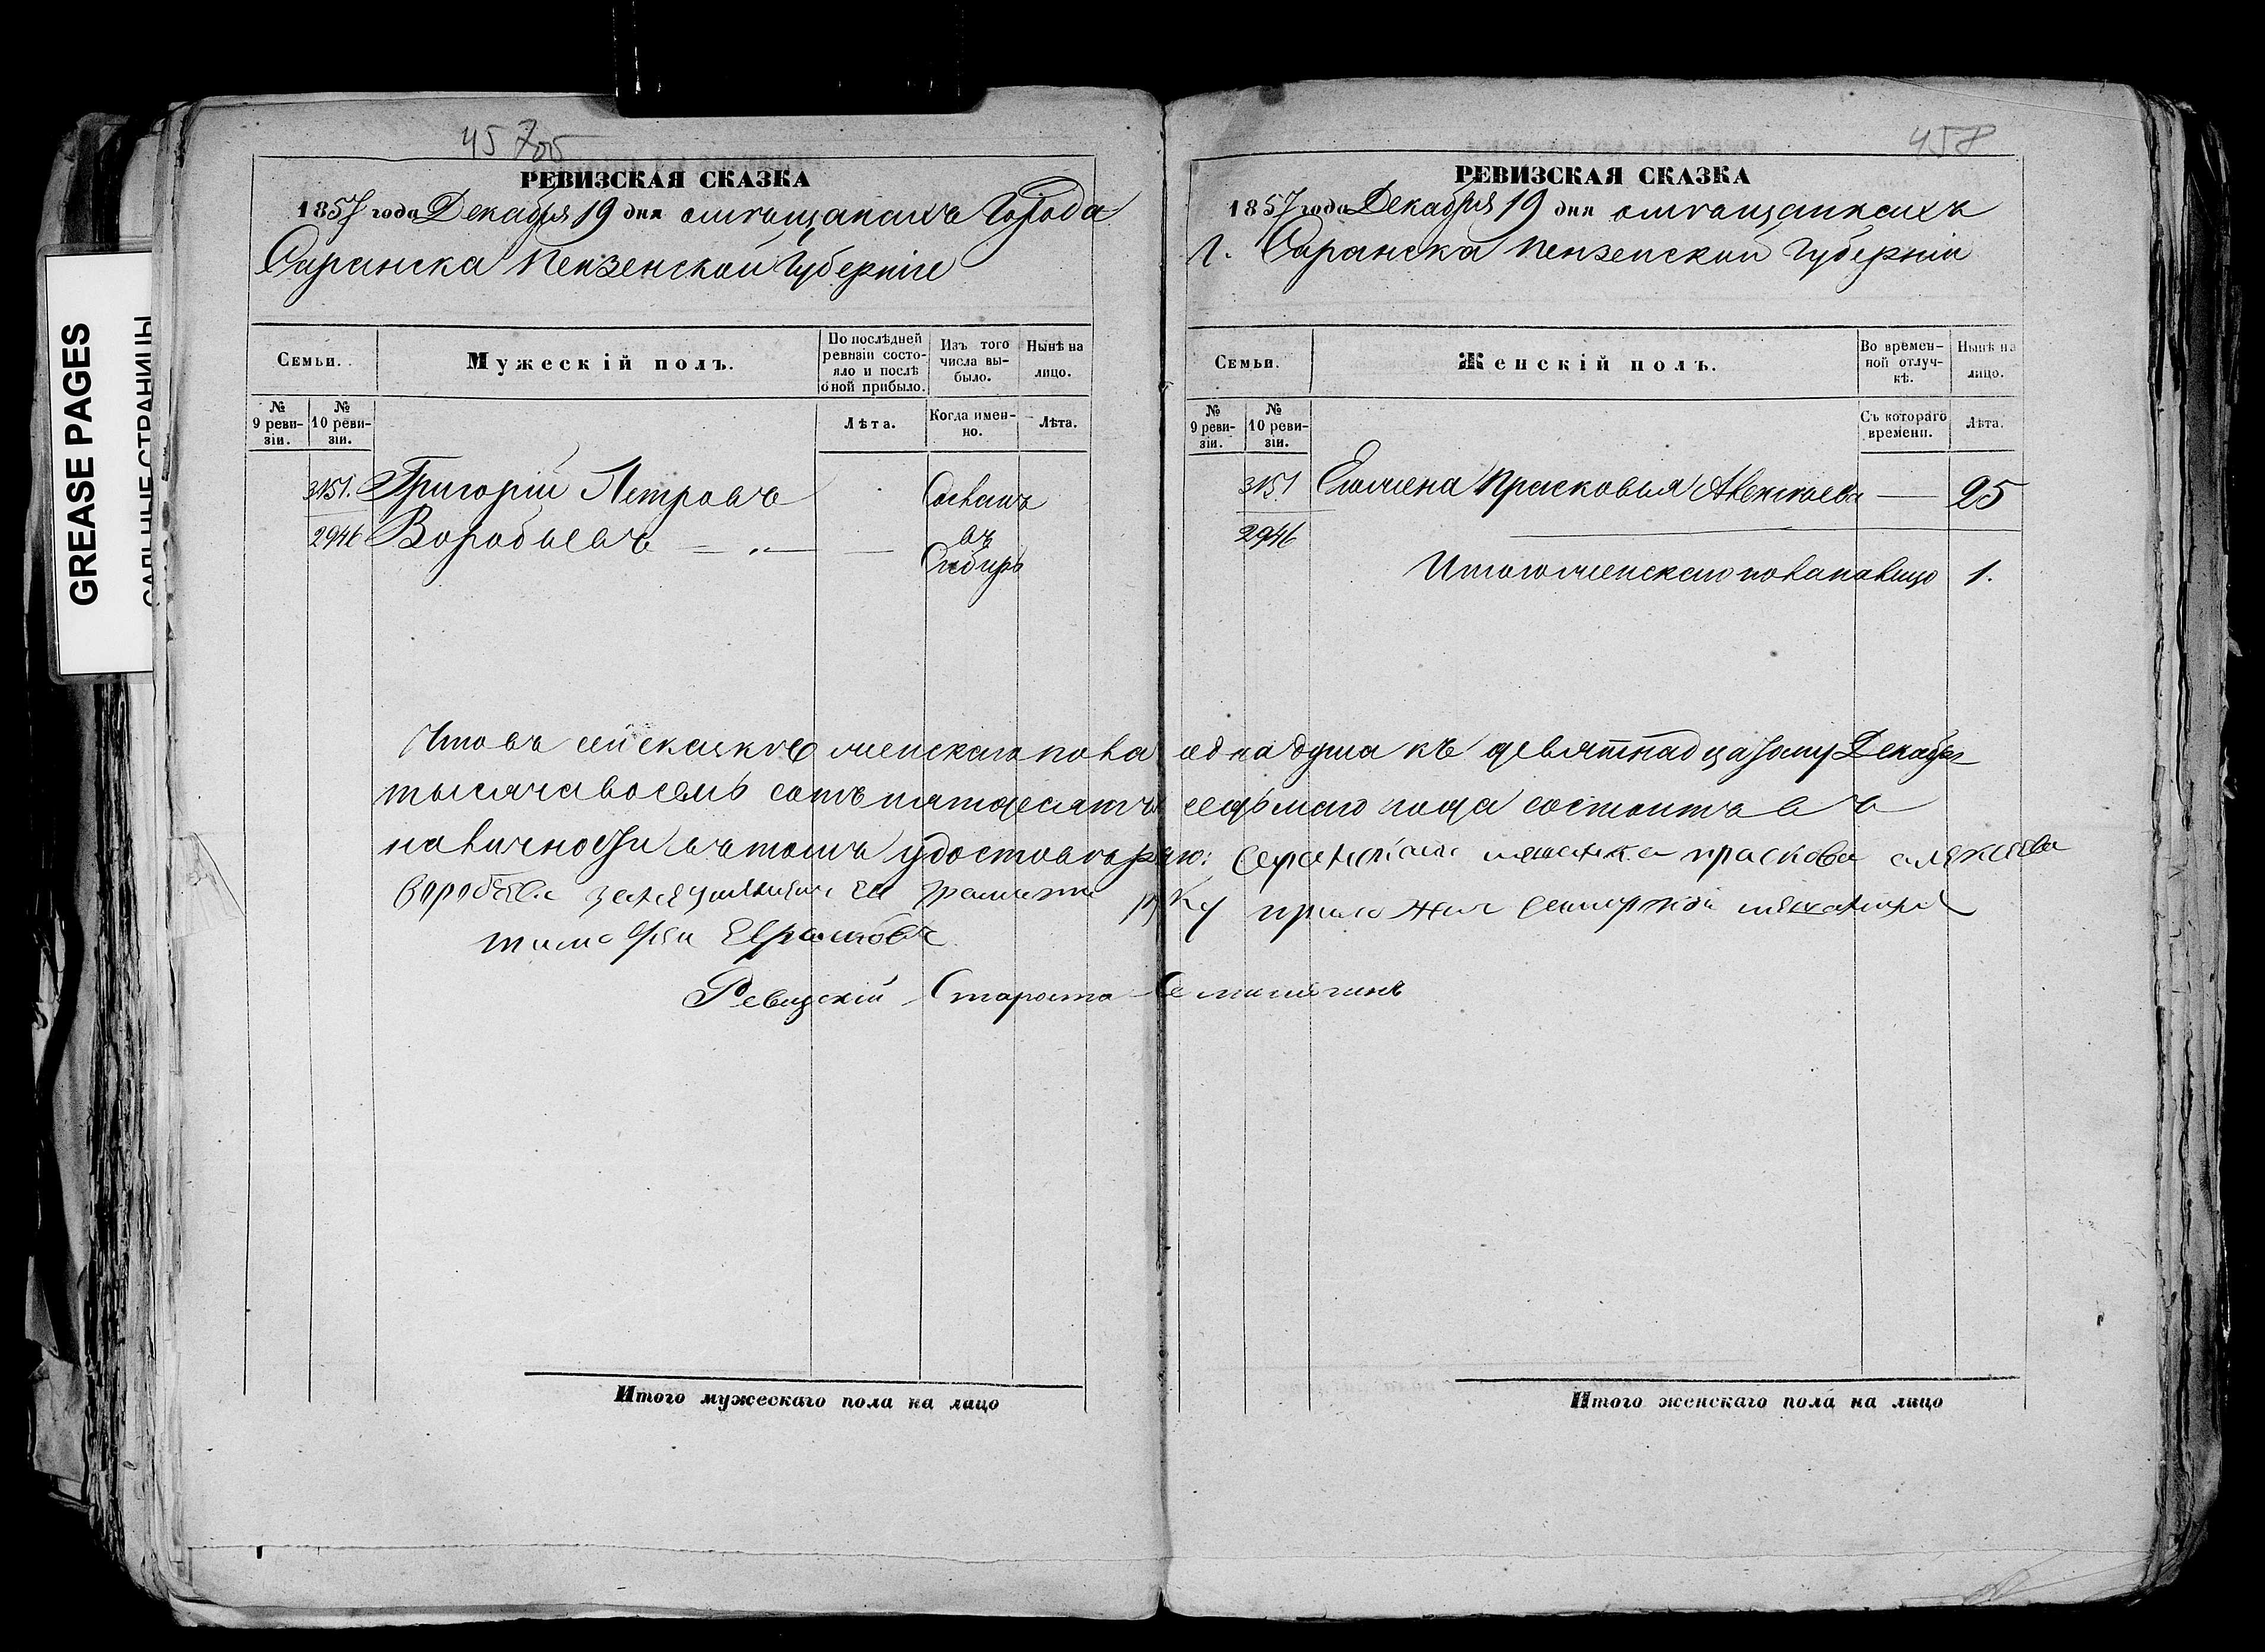 GREASE PAGES
САЛЬНЫЕ СТРАНИЦЫ
457об
РЕВИЗСКАЯ СКАЗКА
1857 года Декабря 19 дня о мѣщанахъ Города
Саранска Пензенской Губерніи
Семьи.
Мужескій полъ.
По послѣдней ревизіи состояло и послѣ оной прибыло.
Изъ того числа выбыло.
Нынѣ на лицо.
№ 9 ревизіи.
№ 10 ревизіи.
Лѣта.
Когда именно.
Лѣта.
3151. Григорій Петровъ Сосланъ
2946 Воробьевъ въ
Сибирь
Итого мужескаго пола на лицо
458
РЕВИЗСКАЯ СКАЗКА
1857 года Декабря 19 дня о мѣщанкахъ
Г. Саранска Пензенской Губерніи
Семьи.
Женскій полъ.
Во временной отлучкѣ.
Нынѣ на лицо.
№ 9 ревизіи.
№ 10 ревизіи.
Съ котораго времени.
Лѣта.
3151 Его жена Прасковья Алексѣева — 25
2946
Итого женскаго пола на лицо 1.
Что въ сей сказкѣ женскаго пола одна душа къ девятнадцатому Декабря
тысяча восемь сотъ пятдесятъ седьмаго года состоитъ въ
наличности въ томъ удостовѣряю: Саранская мѣшанка прасковя алексѣева
воробева за неумѣниемъ ея грамоте руку приложил
тимофеи
Ревизскій Староста
Итого женскаго пола на лицо